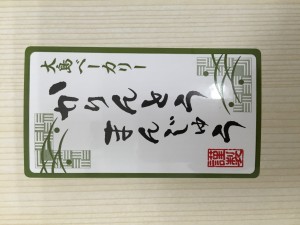 大島ベーカリー
かりんとう
まんじゅう
謹製